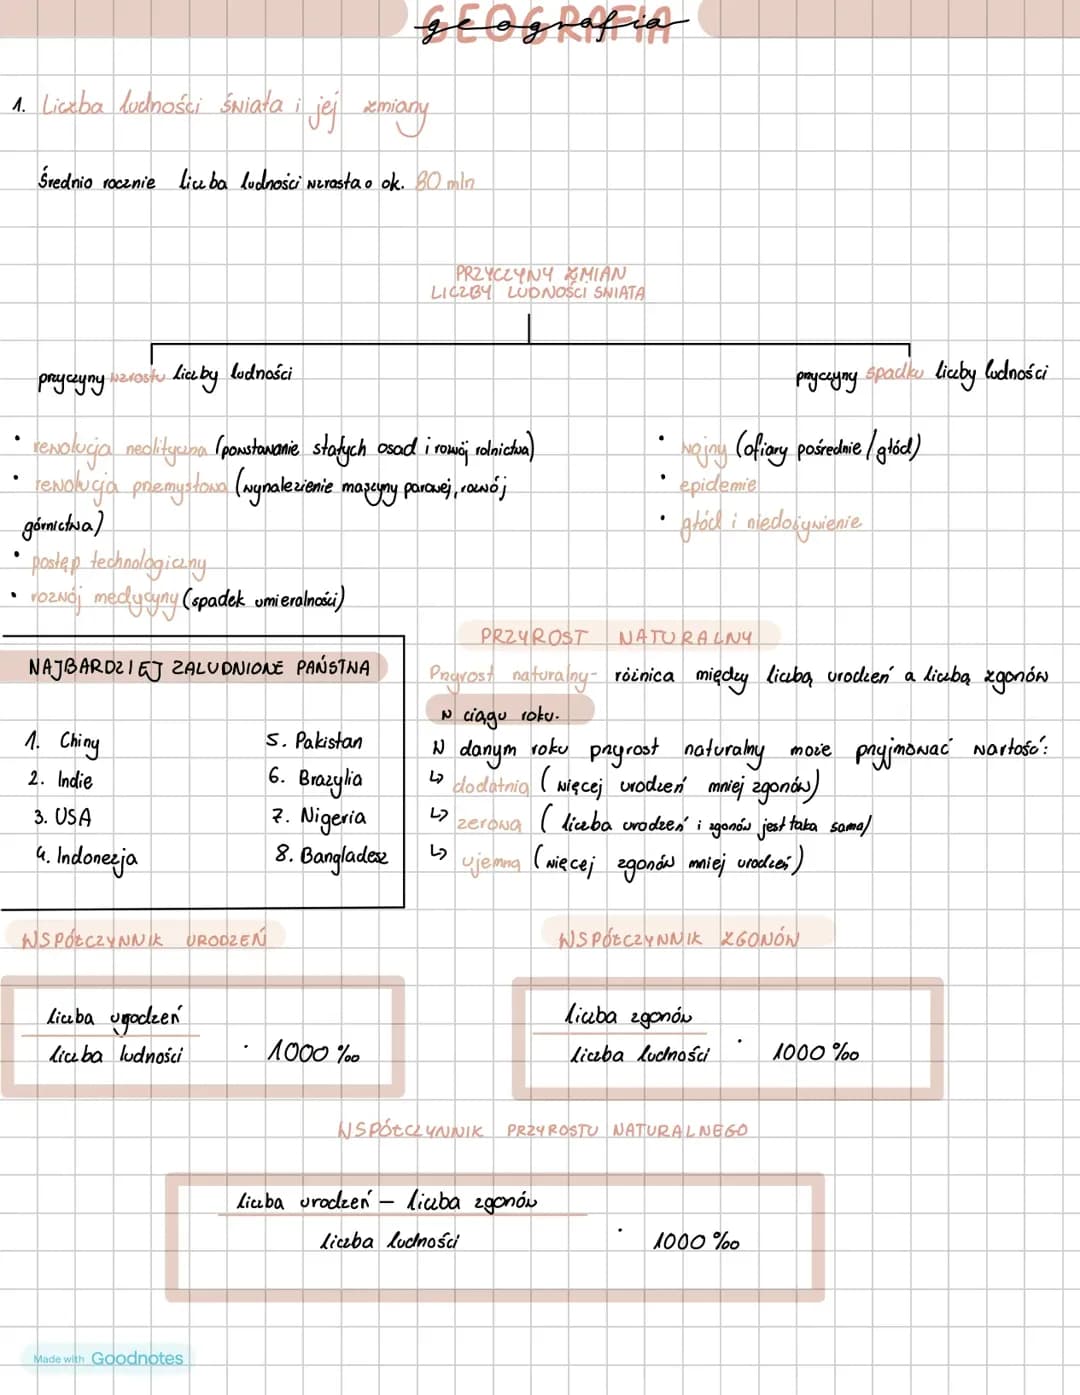 GEOGRAFIA
geografia
1. Liczba ludności świata i jej zmiany
Średnio rocznie liczba ludności wzrasta o ok. 80 mln
PRZYCZYNY ZMIAN
LICZBY LUDNOŚCI ŚWIATA
przyczyny wzrostu liczby ludności
przyczyny spadku liczby ludności
• rewolucja neolityczna (powstawanie stałych osad i rozwój rolnictwa)
• rewolucja przemysłowa (wynalezienie maszyny parowej, rozwój
górnictwa)
• postęp technologiczny
• rozwój medycyny (spadek umieralności)
• wojny (ofiary pośrednie/głód)
• epidemie
• głód i niedożywienie
NAJBARDZIEJ ZALUDNIONE PAŃSTWA
1. Chiny
2. Indie
3. USA
4. Indonezja
5. Pakistan
6. Brazylia
7. Nigeria
8. Bangladesz
PRZYROST NATURALNY
Przyrost naturalny- różnica między liczbą urodzeń a liczbą zgonów
w ciągu roku.
W danym roku przyrost naturalny może przyjmować wartość:
↳ dodatnią (więcej urodzeń mniej zgonów)
↳ zerową (liczba urodzeń i zgonów jest taka sama)
↳ ujemną (więcej zgonów mniej urodzeń)
WSPÓŁCZYNNIK URODZEŃ
liczba urodzeń
liczba ludności · 1000 ‰
WSPÓŁCZYNNIK ZGONÓW
liczba zgonów
liczba ludności · 1000 ‰
WSPÓŁCZYNNIK PRZYROSTU NATURALNEGO
liczba urodzeń – liczba zgonów
liczba ludności · 1000 ‰
Made with Goodnotes